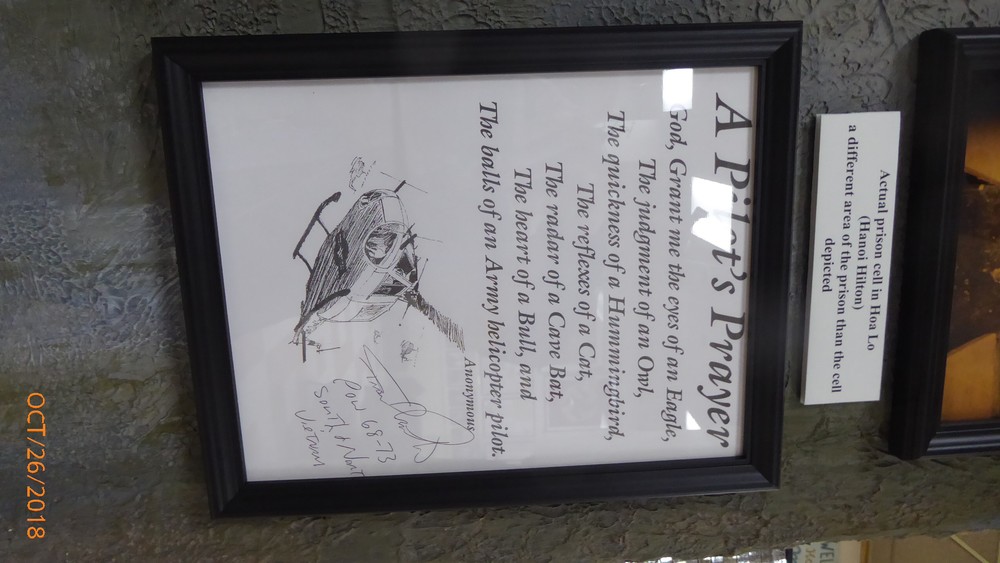 Actual prison cell in Hoa Lo
(Hanoi Hilton)
a different area of the prison than the cell
depicted
A Pilot's Prayer
God, Grant me the eyes of an Eagle,
The judgment of an Owl,
The quickness of a Hummingbird,
The reflexes of a Cat,
The radar of a Cave Bat,
The heart of a Bull, and
The balls of an Army helicopter pilot.
Anonymous
POW 68-73
South & North
Vietnam
OCT/26/2018